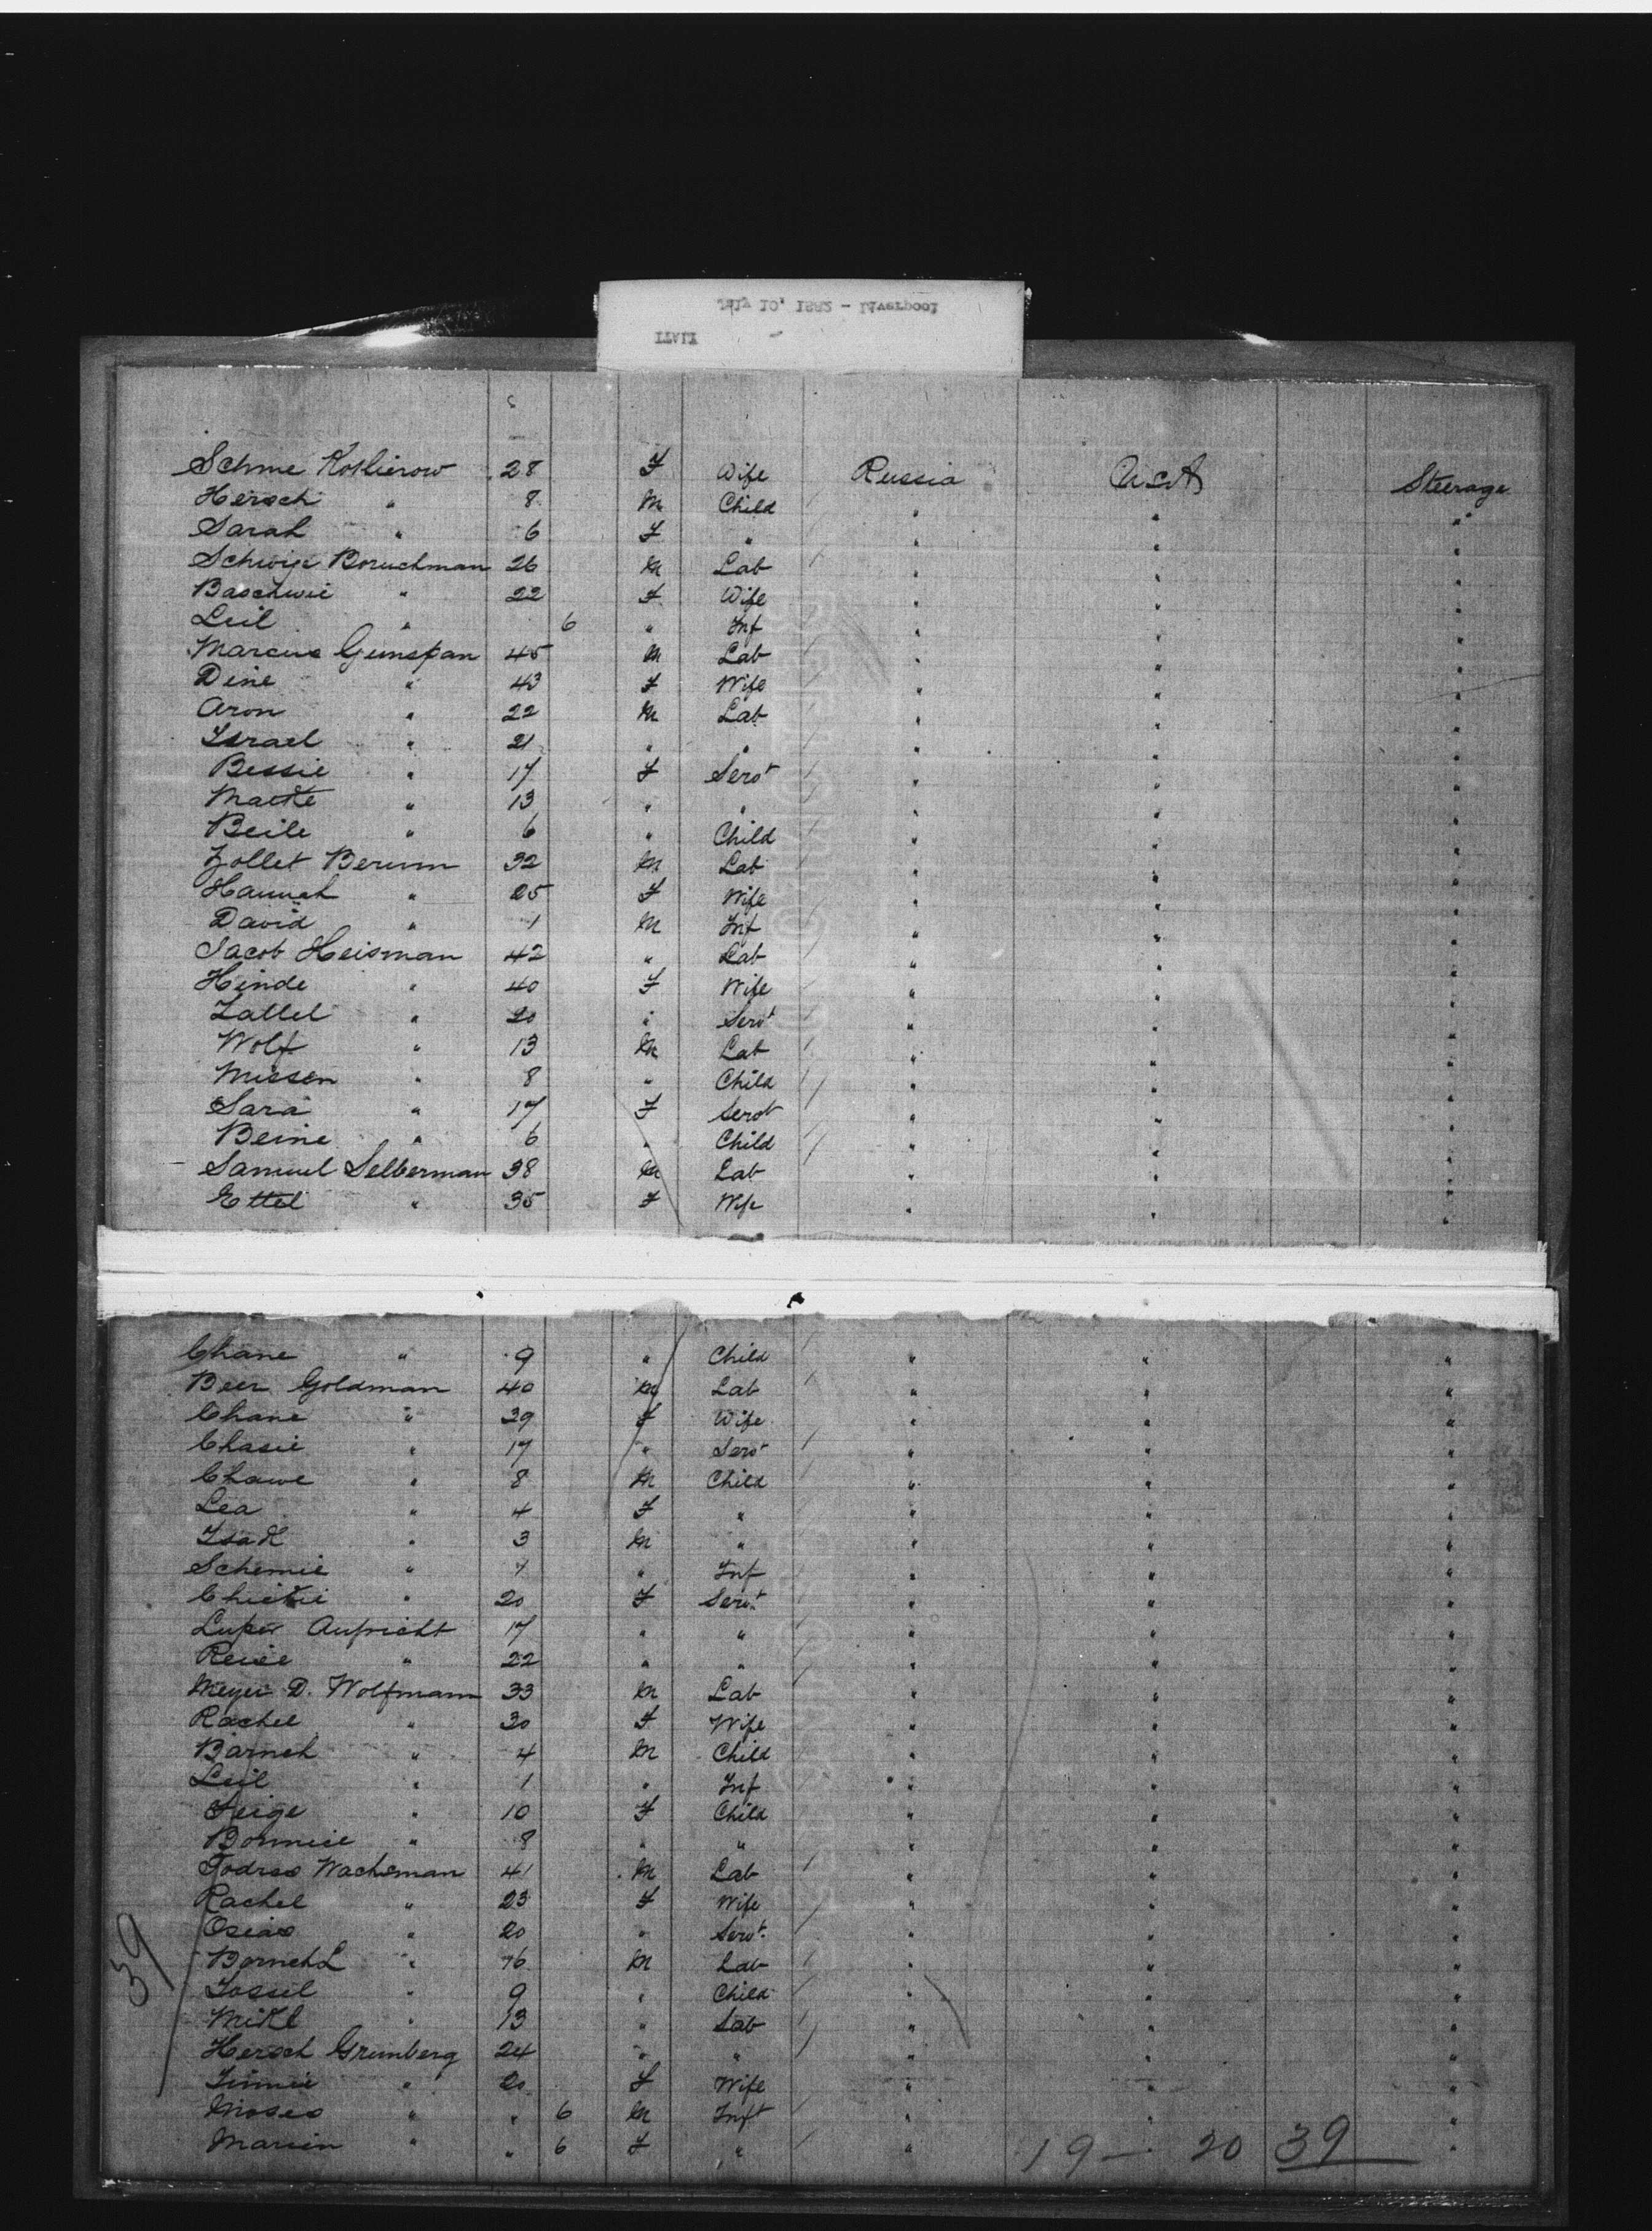 July 10, 1882 - Liverpool
Schme Kotlierow 28 F Wife Russia U.S.A Steerage
Hersch " 8 M Child " " "
Sarah " 6 F " " " "
Boruchman 26 M Lab " " "
Baschwie " 22 F Wife " " "
Leil " 6 " Inf " " "
Marcus Gunspan 45 M Lab " " "
Dine " 43 F Wife " " "
Aron " 22 M Lab " " "
Israel " 21 " " " " "
Bessie " 17 F Servt " " "
Matte " 13 " " " " "
Beile " 6 " Child " " "
Zollet Berum 32 M Lab " " "
Hannah " 25 F Wife " " "
David " 1 M Inf " " "
Jacob Heisman 42 " Lab " " "
Hinde " 40 F Wife " " "
Zallel " 20 " Servt " " "
Wolf " 13 M Lab " " "
Missen " 8 " Child " " "
Sara " 17 F Servt " " "
Beine " 6 " Child " " "
Samuel Selberman 38 M Lab " " "
Ettel " 35 F Wife " " "
Chane " 9 " Child " " "
Beer Goldman 40 M Lab " " "
Chane " 39 F Wife " " "
Chasie " 17 " Servt " " "
Chawe " 8 M Child " " "
Lea " 4 F " " " "
Isak " 3 M " " " "
Schemie " " Inf " " "
" 20 F Servt " " "
Aufricht 17 " " " " "
" 22 " " " " "
Meyer D. Wolfmann 33 M Lab " " "
Rachel " 30 F Wife " " "
Barneh " 4 M Child " " "
Leil " 1 " Inf " " "
Feige " 10 F Child " " "
" 8 " " " " "
Todras Wachsman 41 M Lab " " "
Rachel " 23 F Wife " " "
Osias " 20 " Servt " " "
Borneh L " 76 M Lab " " "
Jossel " 9 " Child " " "
Mikl " 13 " Lab " " "
Hersch Grunberg 24 " " " " "
" 20 F Wife " " "
Moses " " 6 M Inft " " "
" " 6 F " " "
39
19 - 20 39